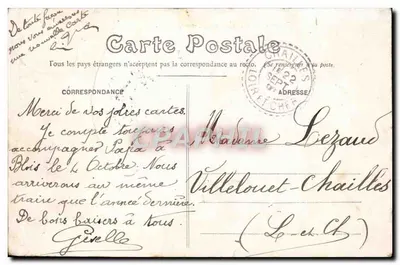 De toute façon
nous vous aviserons
une nouvelle carte
Carte Postale
Tous les pays étrangers n'acceptent pas la correspondance au recto.
CORRESPONDANCE
ADRESSE
22
SEPT
Merci de vos jolies cartes.
Je compte toujours
accompagner Papa à
Blois le 4 Octobre. Nous
arriverons au même
train que l'année dernière.
De bons baisers à tous.
Giselle
Madame Lezaud
Villelouet Chailles
(L-et-Ch)